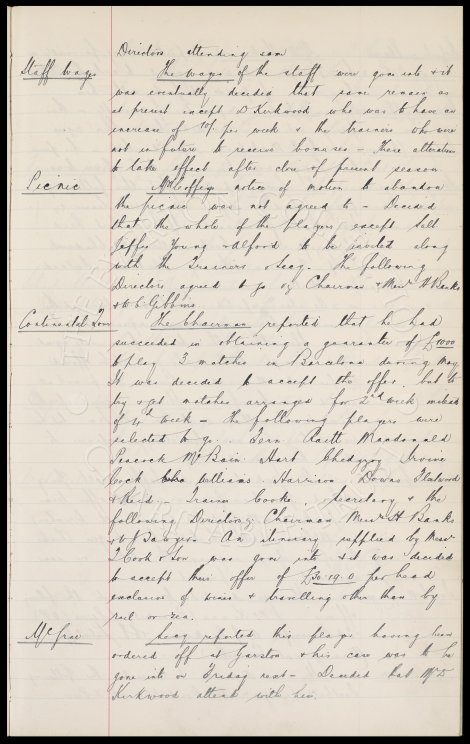 Directors attending same
Staff Wages
The wages of the staff were gone into & it
was eventually decided that same remain as
at present except D Kirkwood who was to have an
increase of 10/- per week & the trainers who were
not in future to receive bonuses – These alterations
to take effect after close of present season
Picnic
Mr Coffeys notice of motion to abandon
the picnic was not agreed to – Decided
that the whole of the players except Salt
Jaffes Young & Alford to be invited along
with the Trainers & Secy. The following
Directors agreed to go viz Chairman & Messrs H Banks
& W C Gibbins
Continental Tour
The Chairman reported that he had
succeeded in obtaining a guarantee of £1000
to play 3 matches in Barcelona during May
It was decided to accept the offer, but to
try & get matches arranged for 2nd week instead
of 4th week – The following players were
selected to go. Fern Raitt Macdonald
Peacock McBain Hart Chedgzoy Irvine
Cock Williams Harrison Downs Fleetwood
& Reid. Trainer Cooke. Secretary & the
following Directors, Chairman Messrs H Banks
& W Sawyer. An itinerary supplied by Messrs
T Cook & Son was gone into & it was decided
to accept their offer of £30.19.0 per head
exclusive of wines & travelling other than by
rail or sea.
McGrae
Secy reported this player having been
ordered off at Garston & his case was to be
gone into on Friday next – Decided that Mr D
Kirkwood attend with him.